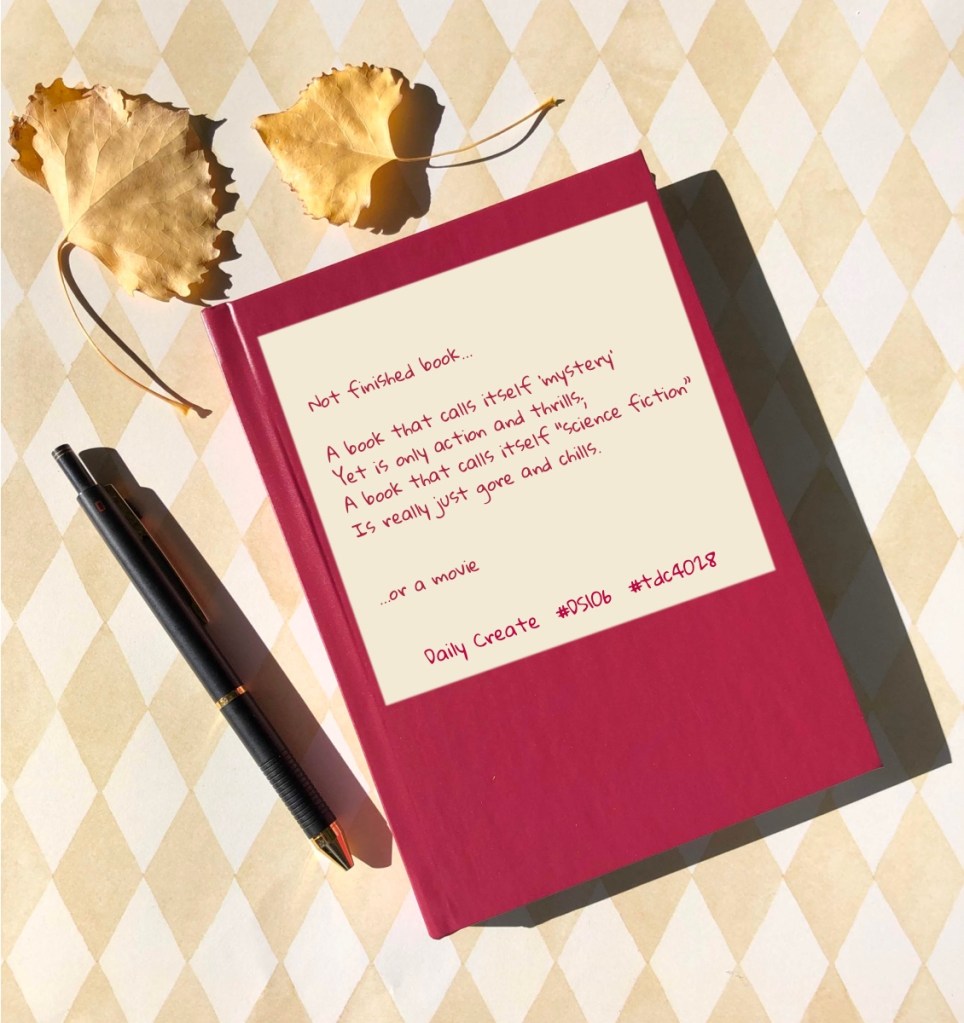 Not finished book...
A book that calls itself 'mystery'
Yet is only action and thrills;
A book that calls itself "science fiction"
Is really just gore and chills.
...or a movie
Daily Create #DS106 #tdc4028